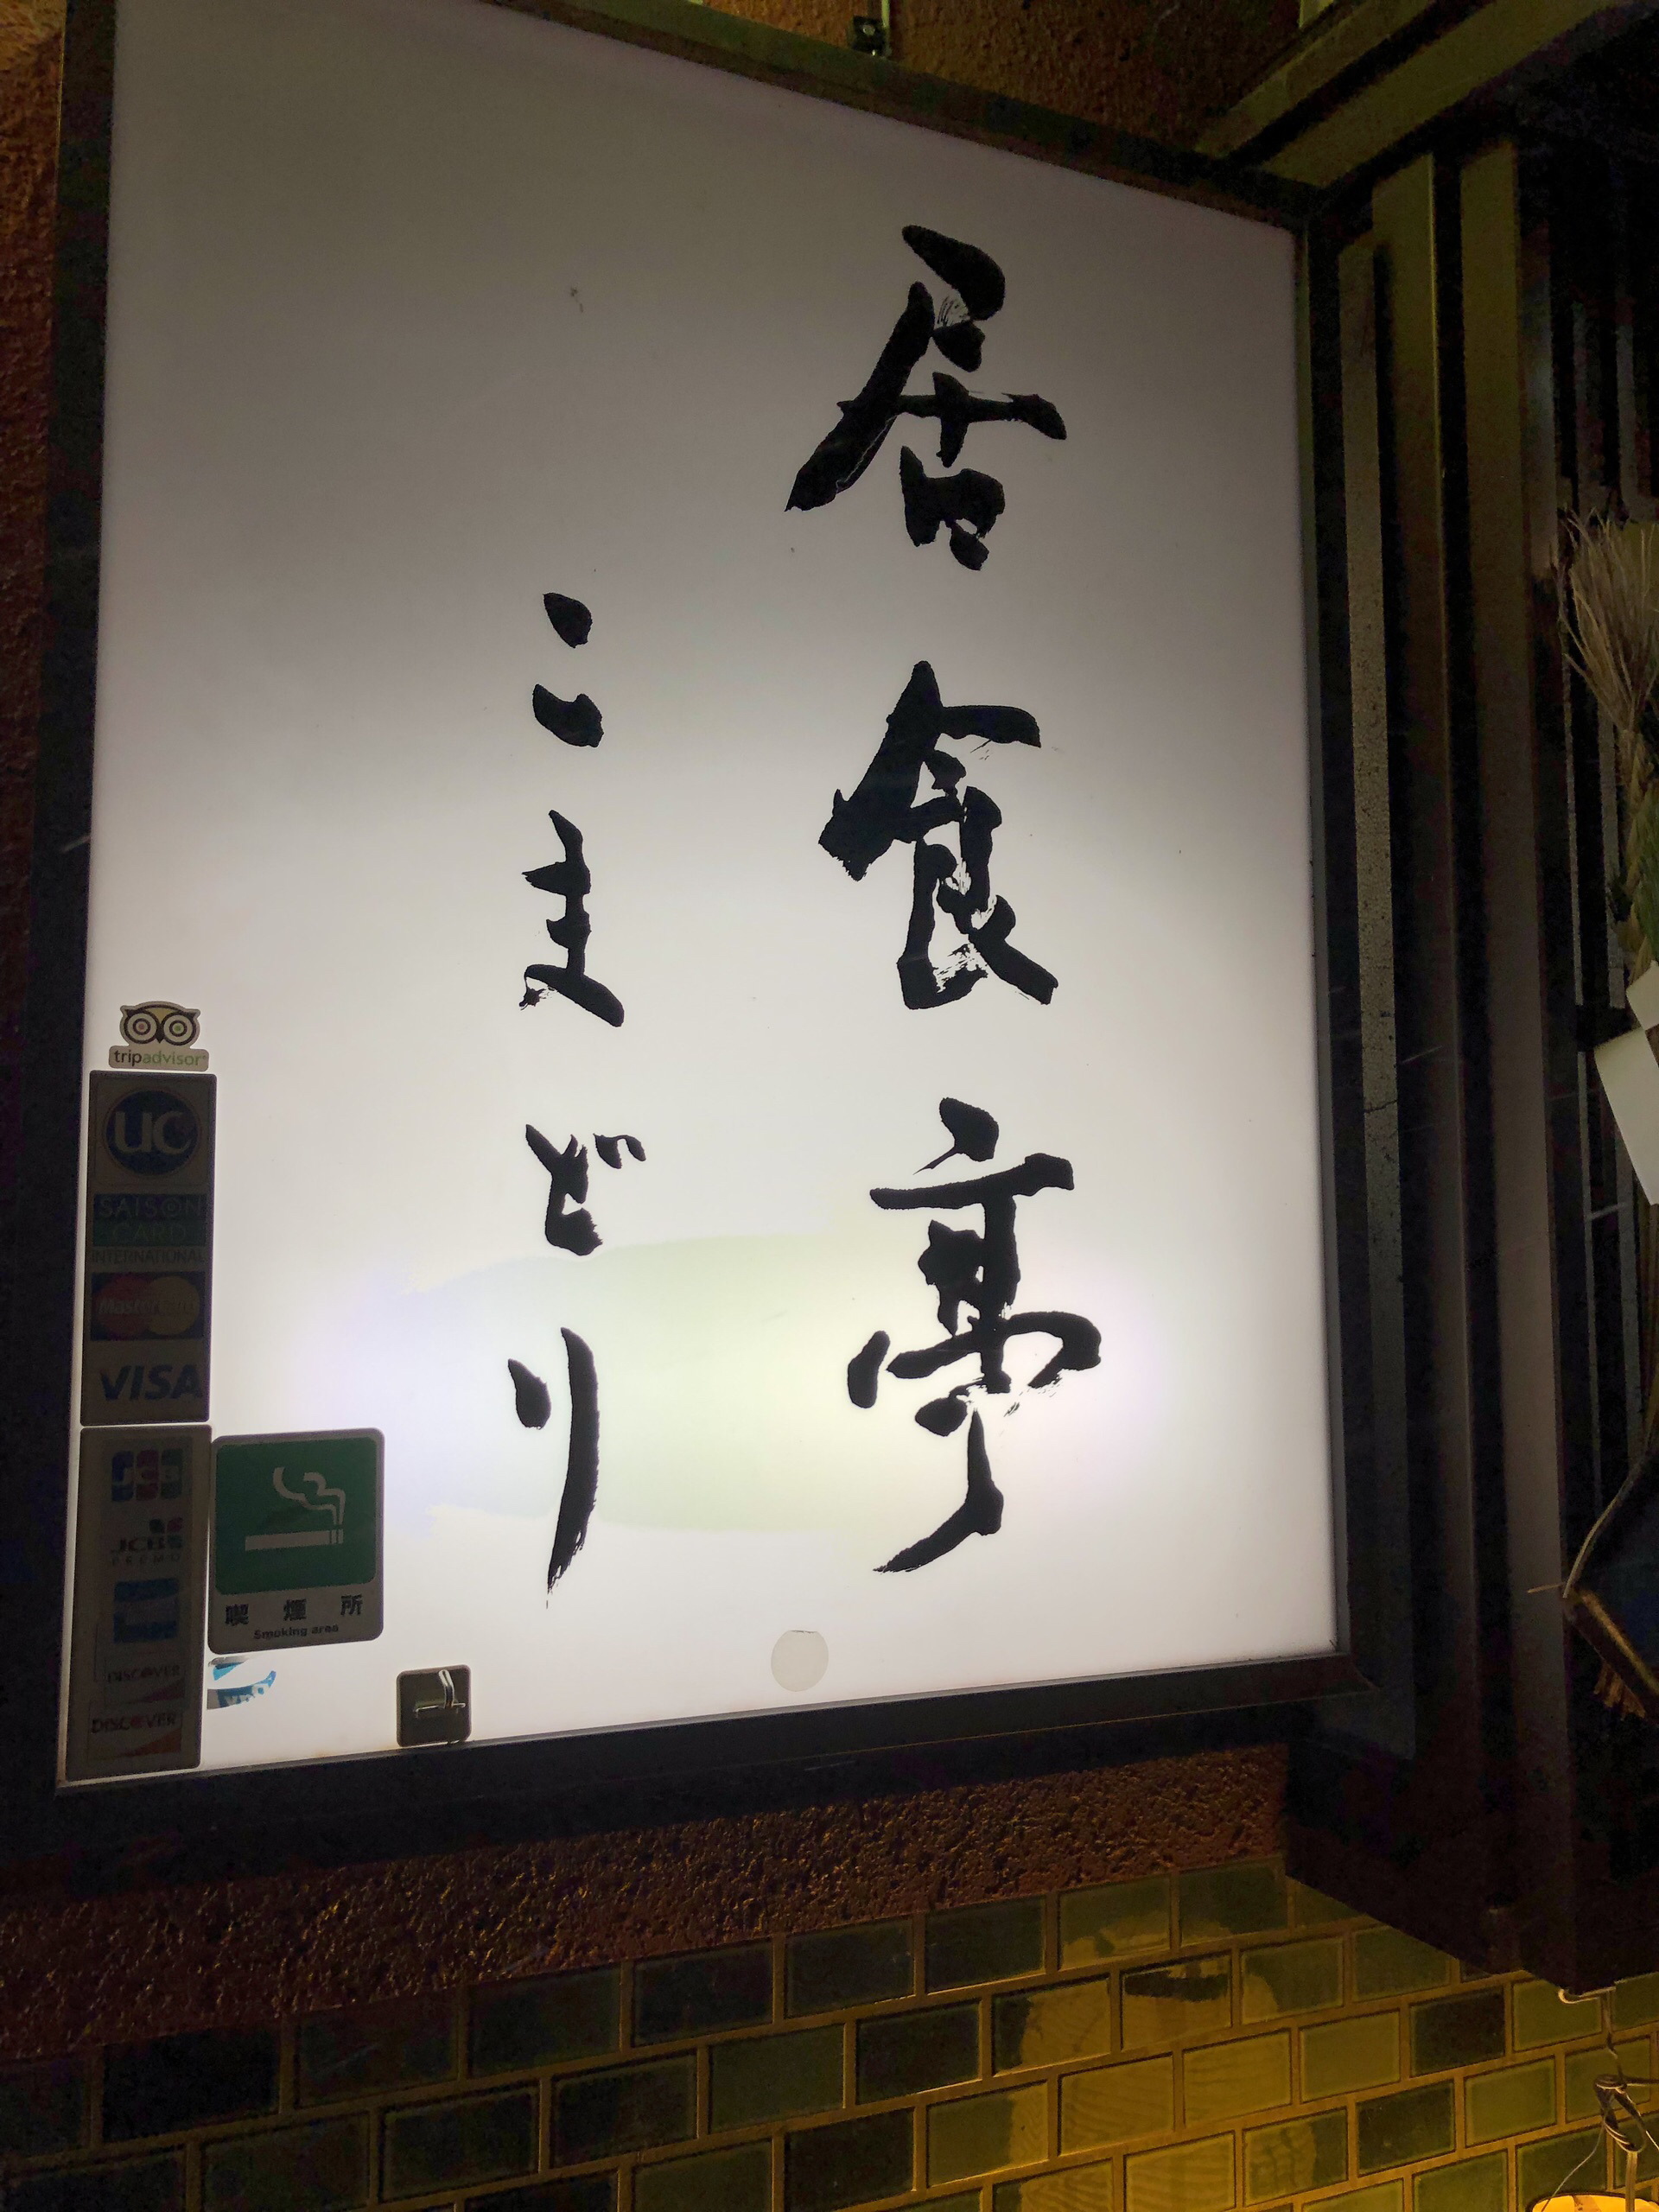 居食亭
こまどり
tripadvisor
UC
SAISON
CARD
INTERNATIONAL
MasterCard
VISA
JCB
JCB
PREMO
喫煙所
Smoking area
DISCOVER
DISCOVER